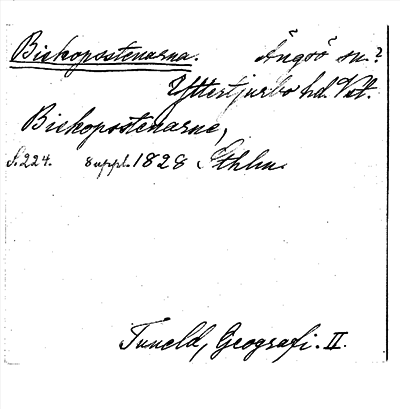 Biskopsstenarna. Ängsö sn.?
Yttertjurbo hd. Vstm.
Biskopsstenarne,
S. 224. 8 uppl. 1828 Sthlm.
Tuneld, Geografi. II.